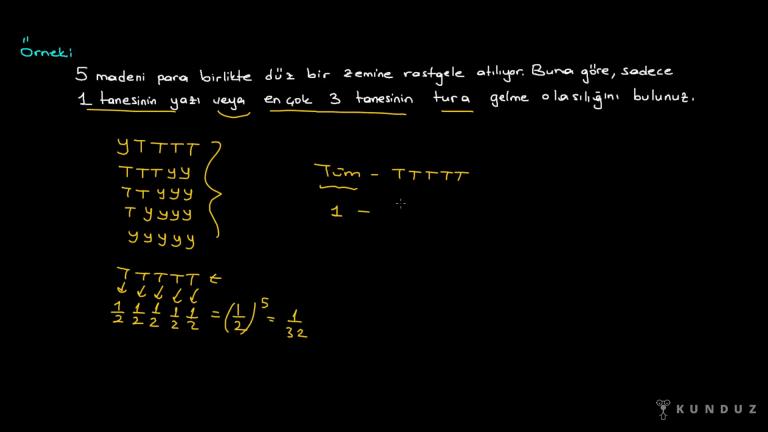 Örnek:
5 madeni para birlikte düz bir zemine rastgele atılıyor. Buna göre, sadece
1 tanesinin yazı veya en çok 3 tanesinin tura gelme olasılığını bulunuz.
y T T T T
T T T y y
T T y y y
T y y y y
y y y y y
Tüm - T T T T T
1 -
T T T T T ←
1/2 1/2 1/2 1/2 1/2 = (1/2)^5 = 1/32
KUNDUZ